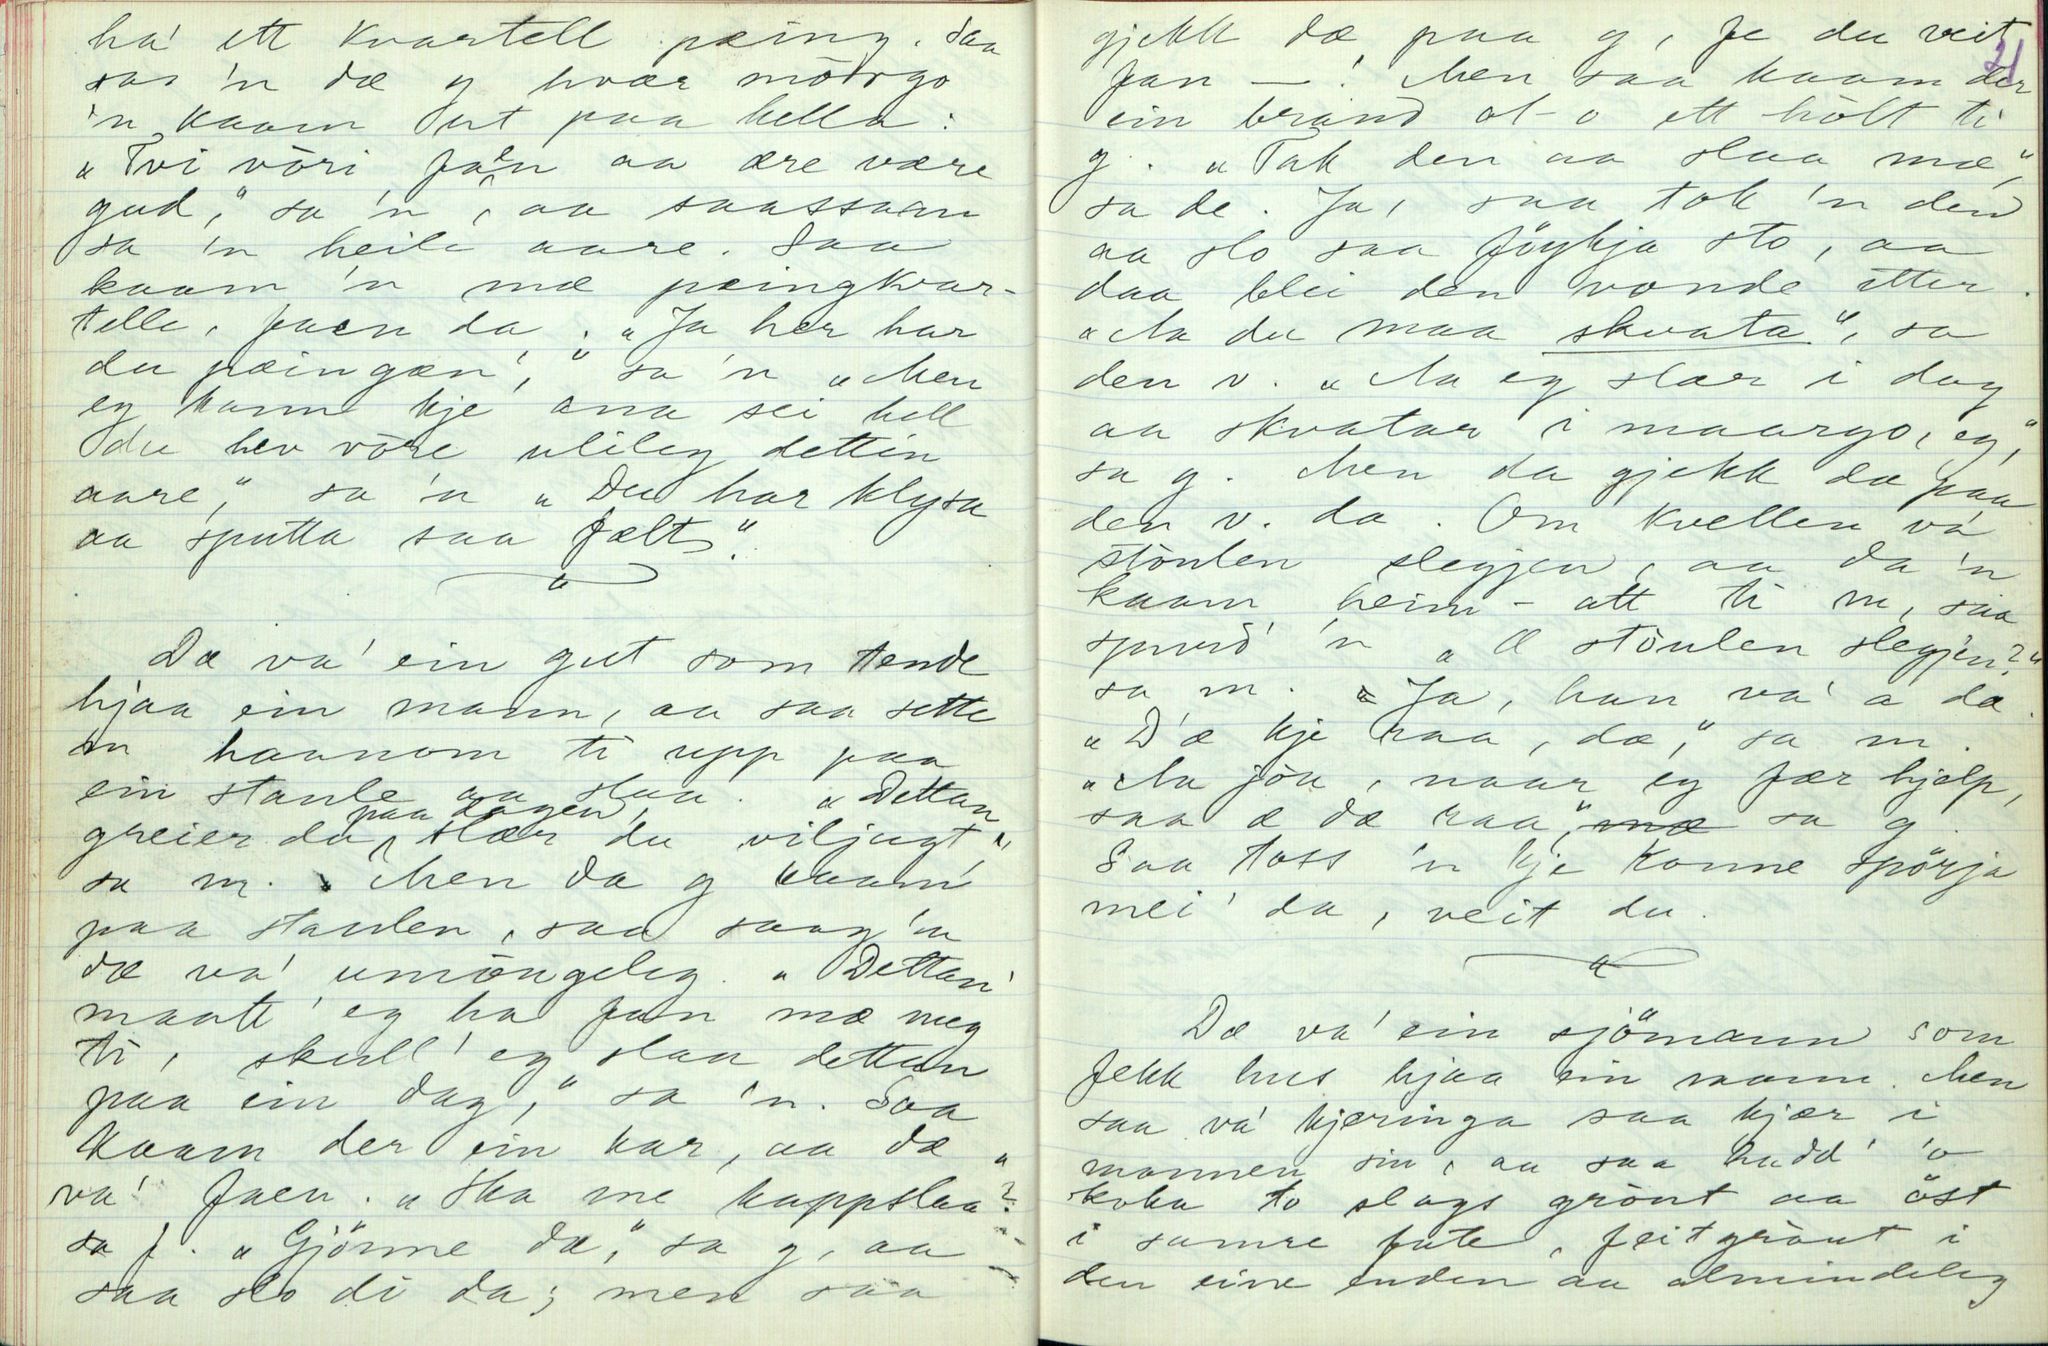 ha' ett kvartell pæing. Saa
sas 'n dæ g hvær mörgo
'n kaam ut paa hella:
„Tvi vöri faen aa ære være
gud," sa 'n, aa saassaan
sa 'n heile aare. Saa
kaam 'n mæ pæingkvar-
telle, faen da. „Ja her har
du pæingæn'," sa 'n „Men
eg kann kje ana sei hell
du hev vöre ulileg dettin
aare," sa 'n „Du har klysa
aa sputta saa fælt".
Dæ va' ein gut som tende
hjaa ein mann, aa saa sette
m haanom ti upp paa
ein staule aa slaa. „Dettan
greier du paa dagen, slær du viljugt",
sa m. Men da g kaam
paa staulen, saa saag 'n
dæ va' umöngeleg. „Dettan
maatt' eg ha fan mæ meg
ti, skull' eg slaa dettan
paa ein dag," sa 'n. Saa
kaam der ein kar, aa dæ
va' faen. „Ska me kappslaa?"
sa f. „Gjönne dæ," sa g, aa
saa slo di da; men saa
21
gjekk dæ paa g, fe du veit
fan —! Men saa kaam der
ein brand ot-o ett hölt ti
g. „Tak den aa slaa mæ,"
sa de. Ja, saa tok 'n den
aa slo saa föykja sto, aa
daa blei den vonde etter.
„Aa du maa skvata", sa
den v. „Aa eg slær i dag
aa skvatar i maargo, eg,"
sa g. Men da gjekk dæ paa
den v. da. Om kvellen va'
stöulen slegjen, aa da 'n
kaam heim-att ti m, saa
spurd' 'n „Æ stöulen slegjen?"
sa m. „Ja, han va' a da.
„D'æ kje raa, dæ," sa m.
„Aa jöu, naar eg fær hjelp,
saa æ dæ raa", mæ sa g.
Saa toss 'n kje konne spörja
mei' da, veit du.
Dæ va' ein sjömann som
fekk hus hjaa ein mann. Men
saa va' kjeringa saa kjær i
mannen sin, aa saa hadd' 'o
koka to slags grönt aa öst
i samre fate, feitgröut i
den eine enden aa almindeleg